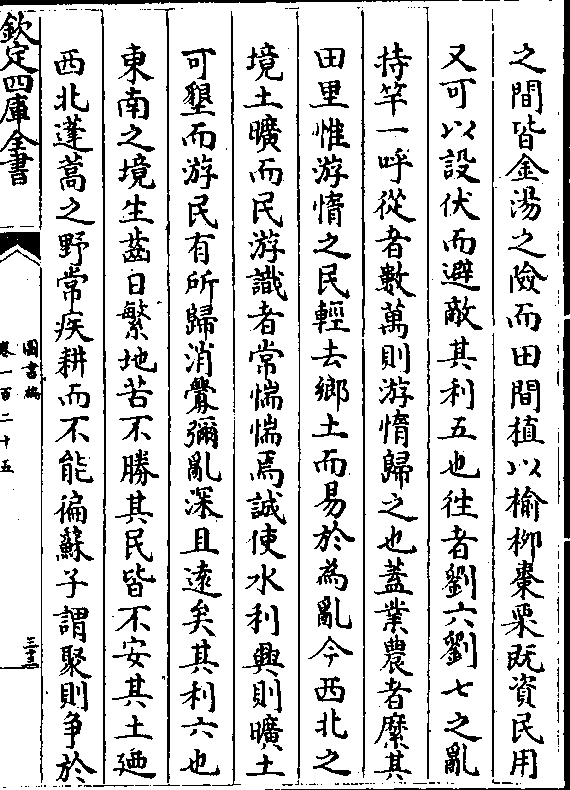 之間皆金湯之險而田間植以榆柳棗栗既資民用
又可以設伏而避敵其利五也徃者劉六劉七之亂
持竿一呼從者數萬則游惰歸之也蓋業農者糜其
田里惟游惰之民輕去鄉土而易於為亂今西北之
境土曠而民游識者常惴惴焉誠使水利興則曠土
可墾而游民有所歸消釁彌亂深且遠矣其利六也
東南之境生齒日繁地苦不勝其民皆不安其土廼
西北蓬蒿之野常疾耕而不能徧蘇子謂聚則争於
欽定四庫全書
圖書編
卷一百二十五
三三